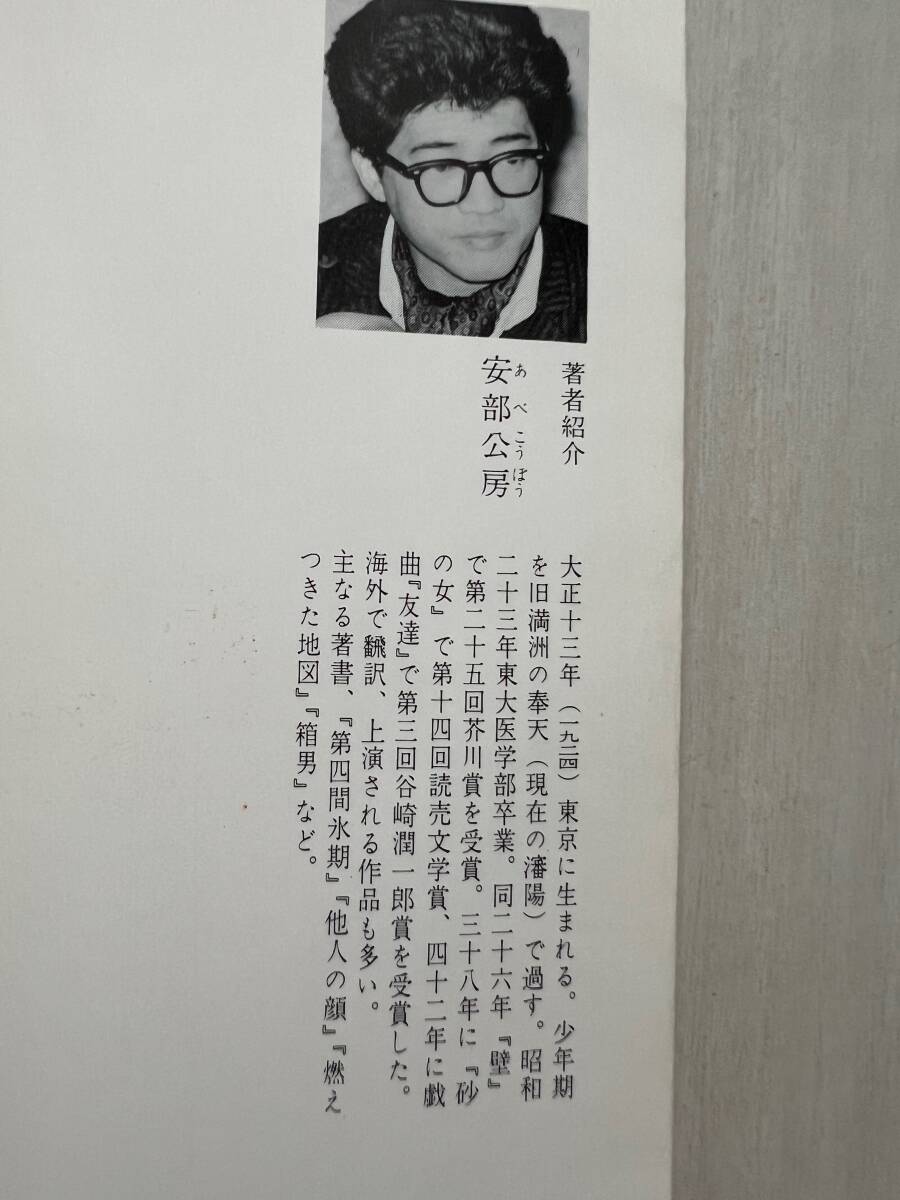 著者紹介
安部公房
あべこうぼう
大正十三年（一九二四）東京に生まれる。少年期
を旧満洲の奉天（現在の瀋陽）で過す。昭和
二十三年東大医学部卒業。同二十六年『壁』
で第二十五回芥川賞を受賞。三十八年に『砂
の女』で第十四回読売文学賞、四十二年に戯
曲『友達』で第三回谷崎潤一郎賞を受賞した。
海外で飜訳、上演される作品も多い。
主なる著書、『第四間氷期』『他人の顔』『燃え
つきた地図』『箱男』など。